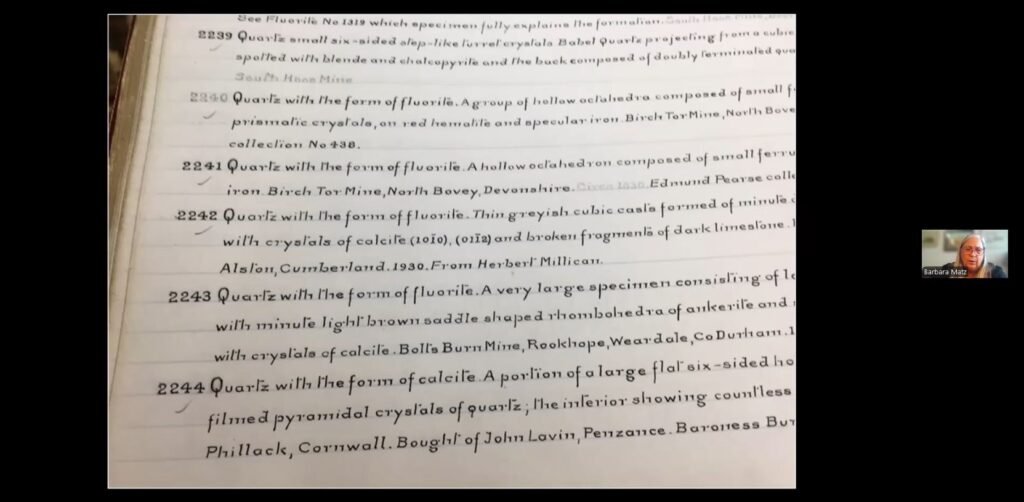 See Fluorite No 1319 which specimen fully explains the formation. South Hooe Mine,
2239 Quartz small six-sided step-like turret crystals Babel Quartz projecting from a cubic
spotted with blende and chalcopyrite and the back composed of doubly terminated
South Hooe Mine
2240 Quartz with the form of fluorite. A group of hollow octahedra composed of small
prismatic crystals, on red hematite and specular iron. Birch Tor Mine, North Bove
collection No 438.
2241 Quartz with the form of fluorite. A hollow octahedron composed of small ferru
iron. Birch Tor Mine, North Bovey, Devonshire. Circa 1830. Edmund Pearse colle
2242 Quartz with the form of fluorite. Thin greyish cubic casts formed of minute
with crystals of calcite (101̄0), (011̄2) and broken fragments of dark limestone.
Alston, Cumberland. 1930. From Herbert Millican.
2243 Quartz with the form of fluorite. A very large specimen consisting of
with minute light brown saddle shaped rhombohedra of ankerite and
with crystals of calcite. Bolts Burn Mine, Rookhope, Weardale, Co Durham.
2244 Quartz with the form of calcite. A portion of a large flat six-sided ho
filmed pyramidal crystals of quartz; the interior showing countless
Phillack, Cornwall. Bought of John Lavin, Penzance. Baroness Bur
Barbara Matz